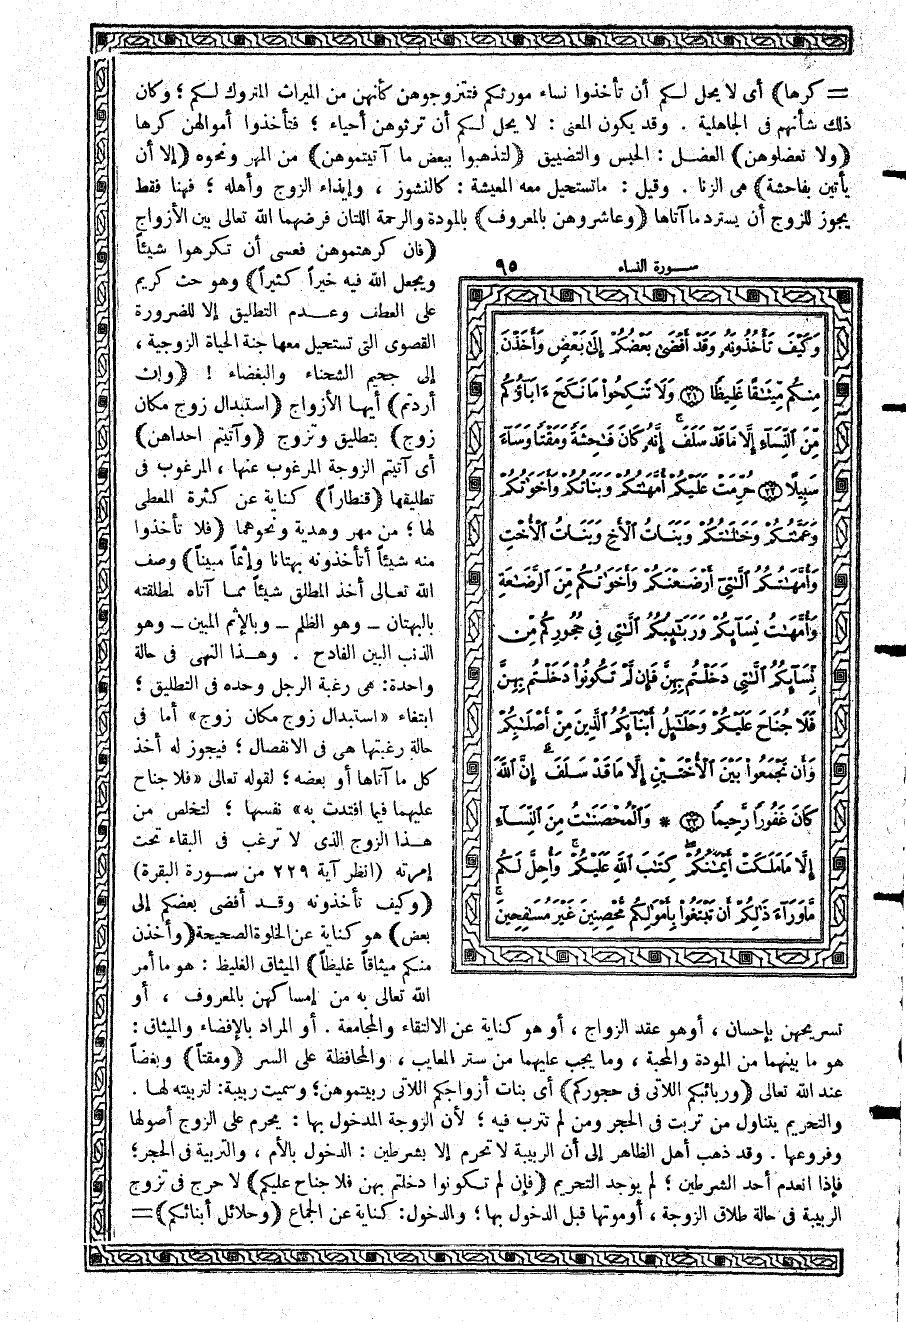 = كرها) أى لا يحل لكم أن تأخذوا نساء مورثكم فتتزوجوهن كأنهن من الميراث المتروك لكم ؛ وكان
ذلك شأنهم فى الجاهلية . وقد يكون المعنى : لا يحل لكم أن ترثوهن أحياء ؛ فتأخذوا أموالهن كرها
(ولا تعضلوهن) العضل : الحبس والتضييق (لتذهبوا ببعض ما آتيتموهن) من المهر ونحوه (إلا أن
يأتين بفاحشة) هى الزنا . وقيل : ماتستحيل معه المعيشة : كالنشوز ، وإيذاء الزوج وأهله ؛ فهنا فقط
يجوز للزوج أن يسترد ما آتاها (وعاشروهن بالمعروف) بالمودة والرحمة اللتان فرضهما الله تعالى بين الأزواج
(فان كرهتموهن فعسى أن تكرهوا شيئاً
ويجعل الله فيه خيراً كثيراً) وهو حث كريم
على العطف وعــدم التطليق إلا للضرورة
القصوى التى تستحيل معها جنة الحياة الزوجية ،
إلى جحيم الشحناء والبغضاء ! (وإن
أردتم) أيها الأزواج (استبدال زوج مكان
زوج) بتطليق وتزوج (وآتيتم احداهن)
أى آتيتم الزوجة المرغوب عنها ، المرغوب فى
تطليقها (قنطاراً) كناية عن كثرة المعطى
لها ؛ من مهر وهدية ونحوهما (فلا تأخذوا
منه شيئاً أتأخذونه بهتانا وإثماً مبيناً) وصف
الله تعـالى أخذ المطلق شيئاً ممـا آتاه لمطلقته
بالبهتان ــ وهو الظلم ــ وبالإثم المبين ــ وهو
الذنب البين الفادح . وهــذا النهى فى حالة
واحدة: هى رغبة الرجل وحده فى التطليق ؛
ابتغاء «استبدال زوج مكان زوج» أما فى
حالة رغبتها هى فى الانفصال ؛ فيجوز له أخذ
كل ما آتاها أو بعضه ؛ لقوله تعالى «فلا جناح
عليهما فيما افتدت به» نفسها ؛ لتخلص من
هــذا الزوج الذى لا ترغب فى البقاء تحت
إمرته (انظر آية ٢٢٩ من سـورة البقرة)
(وكيف تأخذونه وقــد أفضى بعضكم إلى
بعض) هو كناية عن الخلوة الصحيحة (وأخذن
منكم ميثاقاً غليظاً) الميثاق الغليظ : هو ما أمر
الله تعالى به من إمساكهن بالمعروف ، أو
سـورة النساء ٩٥
وَكَيْفَ تَأْخُذُونَهُۥ وَقَدْ أَفْضَىٰ بَعْضُكُمْ إِلَىٰ بَعْضٍ وَأَخَذْنَ
مِنكُم مِّيثَـٰقًا غَلِيظًا ﴿٢١﴾ وَلَا تَنكِحُوا۟ مَا نَكَحَ ءَابَآؤُكُم
مِّنَ ٱلنِّسَآءِ إِلَّا مَا قَدْ سَلَفَ ۚ إِنَّهُۥ كَانَ فَـٰحِشَةً وَمَقْتًا وَسَآءَ
سَبِيلًا ﴿٢٢﴾ حُرِّمَتْ عَلَيْكُمْ أُمَّهَـٰتُكُمْ وَبَنَاتُكُمْ وَأَخَوَٰتُكُمْ
وَعَمَّـٰتُكُمْ وَخَـٰلَـٰتُكُمْ وَبَنَاتُ ٱلْأَخِ وَبَنَاتُ ٱلْأُخْتِ
وَأُمَّهَـٰتُكُمُ ٱلَّـٰتِىٓ أَرْضَعْنَكُمْ وَأَخَوَٰتُكُم مِّنَ ٱلرَّضَـٰعَةِ
وَأُمَّهَـٰتُ نِسَآئِكُمْ وَرَبَـٰٓئِبُكُمُ ٱلَّـٰتِى فِى حُجُورِكُم مِّن
نِّسَآئِكُمُ ٱلَّـٰتِى دَخَلْتُم بِهِنَّ فَإِن لَّمْ تَكُونُوا۟ دَخَلْتُم بِهِنَّ
فَلَا جُنَاحَ عَلَيْكُمْ وَحَلَـٰٓئِلُ أَبْنَآئِكُمُ ٱلَّذِينَ مِنْ أَصْلَـٰبِكُمْ
وَأَن تَجْمَعُوا۟ بَيْنَ ٱلْأُخْتَيْنِ إِلَّا مَا قَدْ سَلَفَ ۗ إِنَّ ٱللَّهَ
كَانَ غَفُورًا رَّحِيمًا ﴿٢٣﴾ * وَٱلْمُحْصَنَـٰتُ مِنَ ٱلنِّسَآءِ
إِلَّا مَا مَلَكَتْ أَيْمَـٰنُكُمْ ۖ كِتَـٰبَ ٱللَّهِ عَلَيْكُمْ ۚ وَأُحِلَّ لَكُم
مَّا وَرَآءَ ذَٰلِكُمْ أَن تَبْتَغُوا۟ بِأَمْوَٰلِكُم مُّحْصِنِينَ غَيْرَ مُسَـٰفِحِينَ ۚ
تسريحهن بإحسان ، أوهو عقد الزواج ، أو هو كناية عن الالتقاء والمجامعة . أو المراد بالإفضاء والميثاق :
هو ما بينهما من المودة والمحبة ، وما يجب عليهما من ستر المعايب ، والمحافظة على السر (ومقتاً) وبغضاً
عند الله تعالى (وربائبكم اللاتى فى حجوركم) أى بنات أزواجكم اللاتى ربيتموهن؛ وسميت ربيبة: لتربيته لهـا .
والتحريم يتناول من تربت فى الحجر ومن لم تترب فيه ؛ لأن الزوجة المدخول بها : يحرم على الزوج أصولها
وفروعها . وقد ذهب أهل الظاهر إلى أن الربيبة لا تحرم إلا بشرطين : الدخول بالأم ، والتربية فى الحجر ؛
فإذا انعدم أحد الشرطين ؛ لم يوجد التحريم (فإن لم تكونوا دخلتم بهن فلا جناح عليكم) لا حرج فى تزوج
الربيبة فى حالة طلاق الزوجة ، أوموتها قبل الدخول بها ؛ والدخول: كناية عن الجماع (وحلائل أبنائكم) =